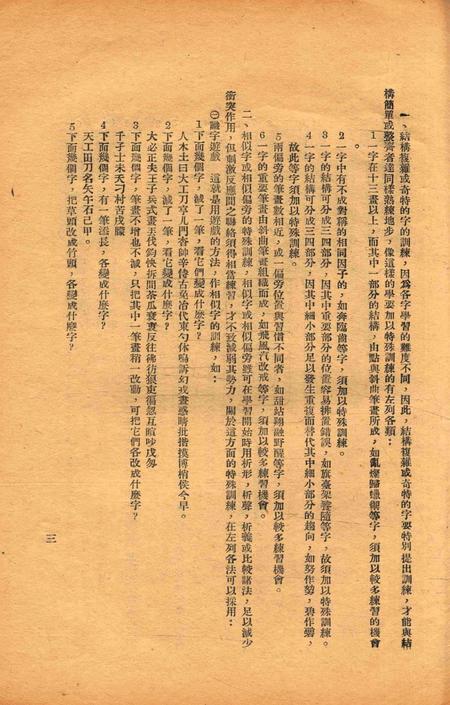 一、結構複雜或奇特的字的訓練，因爲各字學習的難度不同，因此，結構複雜或奇特的字要特別提出訓練，才能與結
構簡單或整齊者達同樣熟練地步，像這樣的學要加以特殊訓練的有左列各類：
1 一字在十三畫以上，而其中一部分的結構，由點與斜曲筆畫所成，如亂燦歸蠟辮等字，須加以較多練習的機會
。
2 一字中有不成對稱的相同因子的，如奔臨齒等字，須加以特殊訓練。
3 一字的結構可分成三四部分，因其中重要部分的位置容易排置錯誤，如旗臺架聲隨等字，故須加以特殊訓練。
4 一字的結構可分成三四部分，因其中細小部分足以發生重複而替代其中細小部分的趨向，如努作勞，碧作
故此等字須加以特殊訓練。
5 兩偏旁的筆畫數相近，或一偏旁位置與習慣不同者，如甜站翔融野醒等字，須加以較多練習機會。
6 一字的重要筆畫由斜曲筆畫組織而成，如飛風汽改戒等字，須加以較多練習機會。
二、相似字或相似偏旁的特殊訓練，相似字或相似偏旁雖可在學習開始時用析形，析聲，析義或比較諸法，足以減少
衝突作用，但刺激反應間之聯絡須得相當練習，才不致減弱其勢力，關於這方面的特殊訓練，在左列各法可以採用：
㈠識字遊戲　這就是用遊戲的方法，作相似字的訓練，如：
1 下面幾個字，減了一筆，看它們變成什麽字？
人木土日大工刀享几門杏帥幸侍古免冶代東勺体鳴訴幻戎畫惑晴批揩摸博梢侯今早。
2 下面幾個字，減了一筆，看它變成什麽字？
大必正夫王子兵戍畫丟伐鈞恢折間茶瓜衰賣反往彿彷狠吏徊忽互暄吵戊匆
3 下面幾個字，筆畫不增也不減，只把其中一筆畫稍一改動，可把它們各改成什麽字？
千孑士末天刁村苦戍朦
4 下面幾個字，有一筆添長，各變成什麽字？
天工田刀名矢午石己甲。
5 下面幾個字，把草頭改成竹頭，各變成什麽字？
三